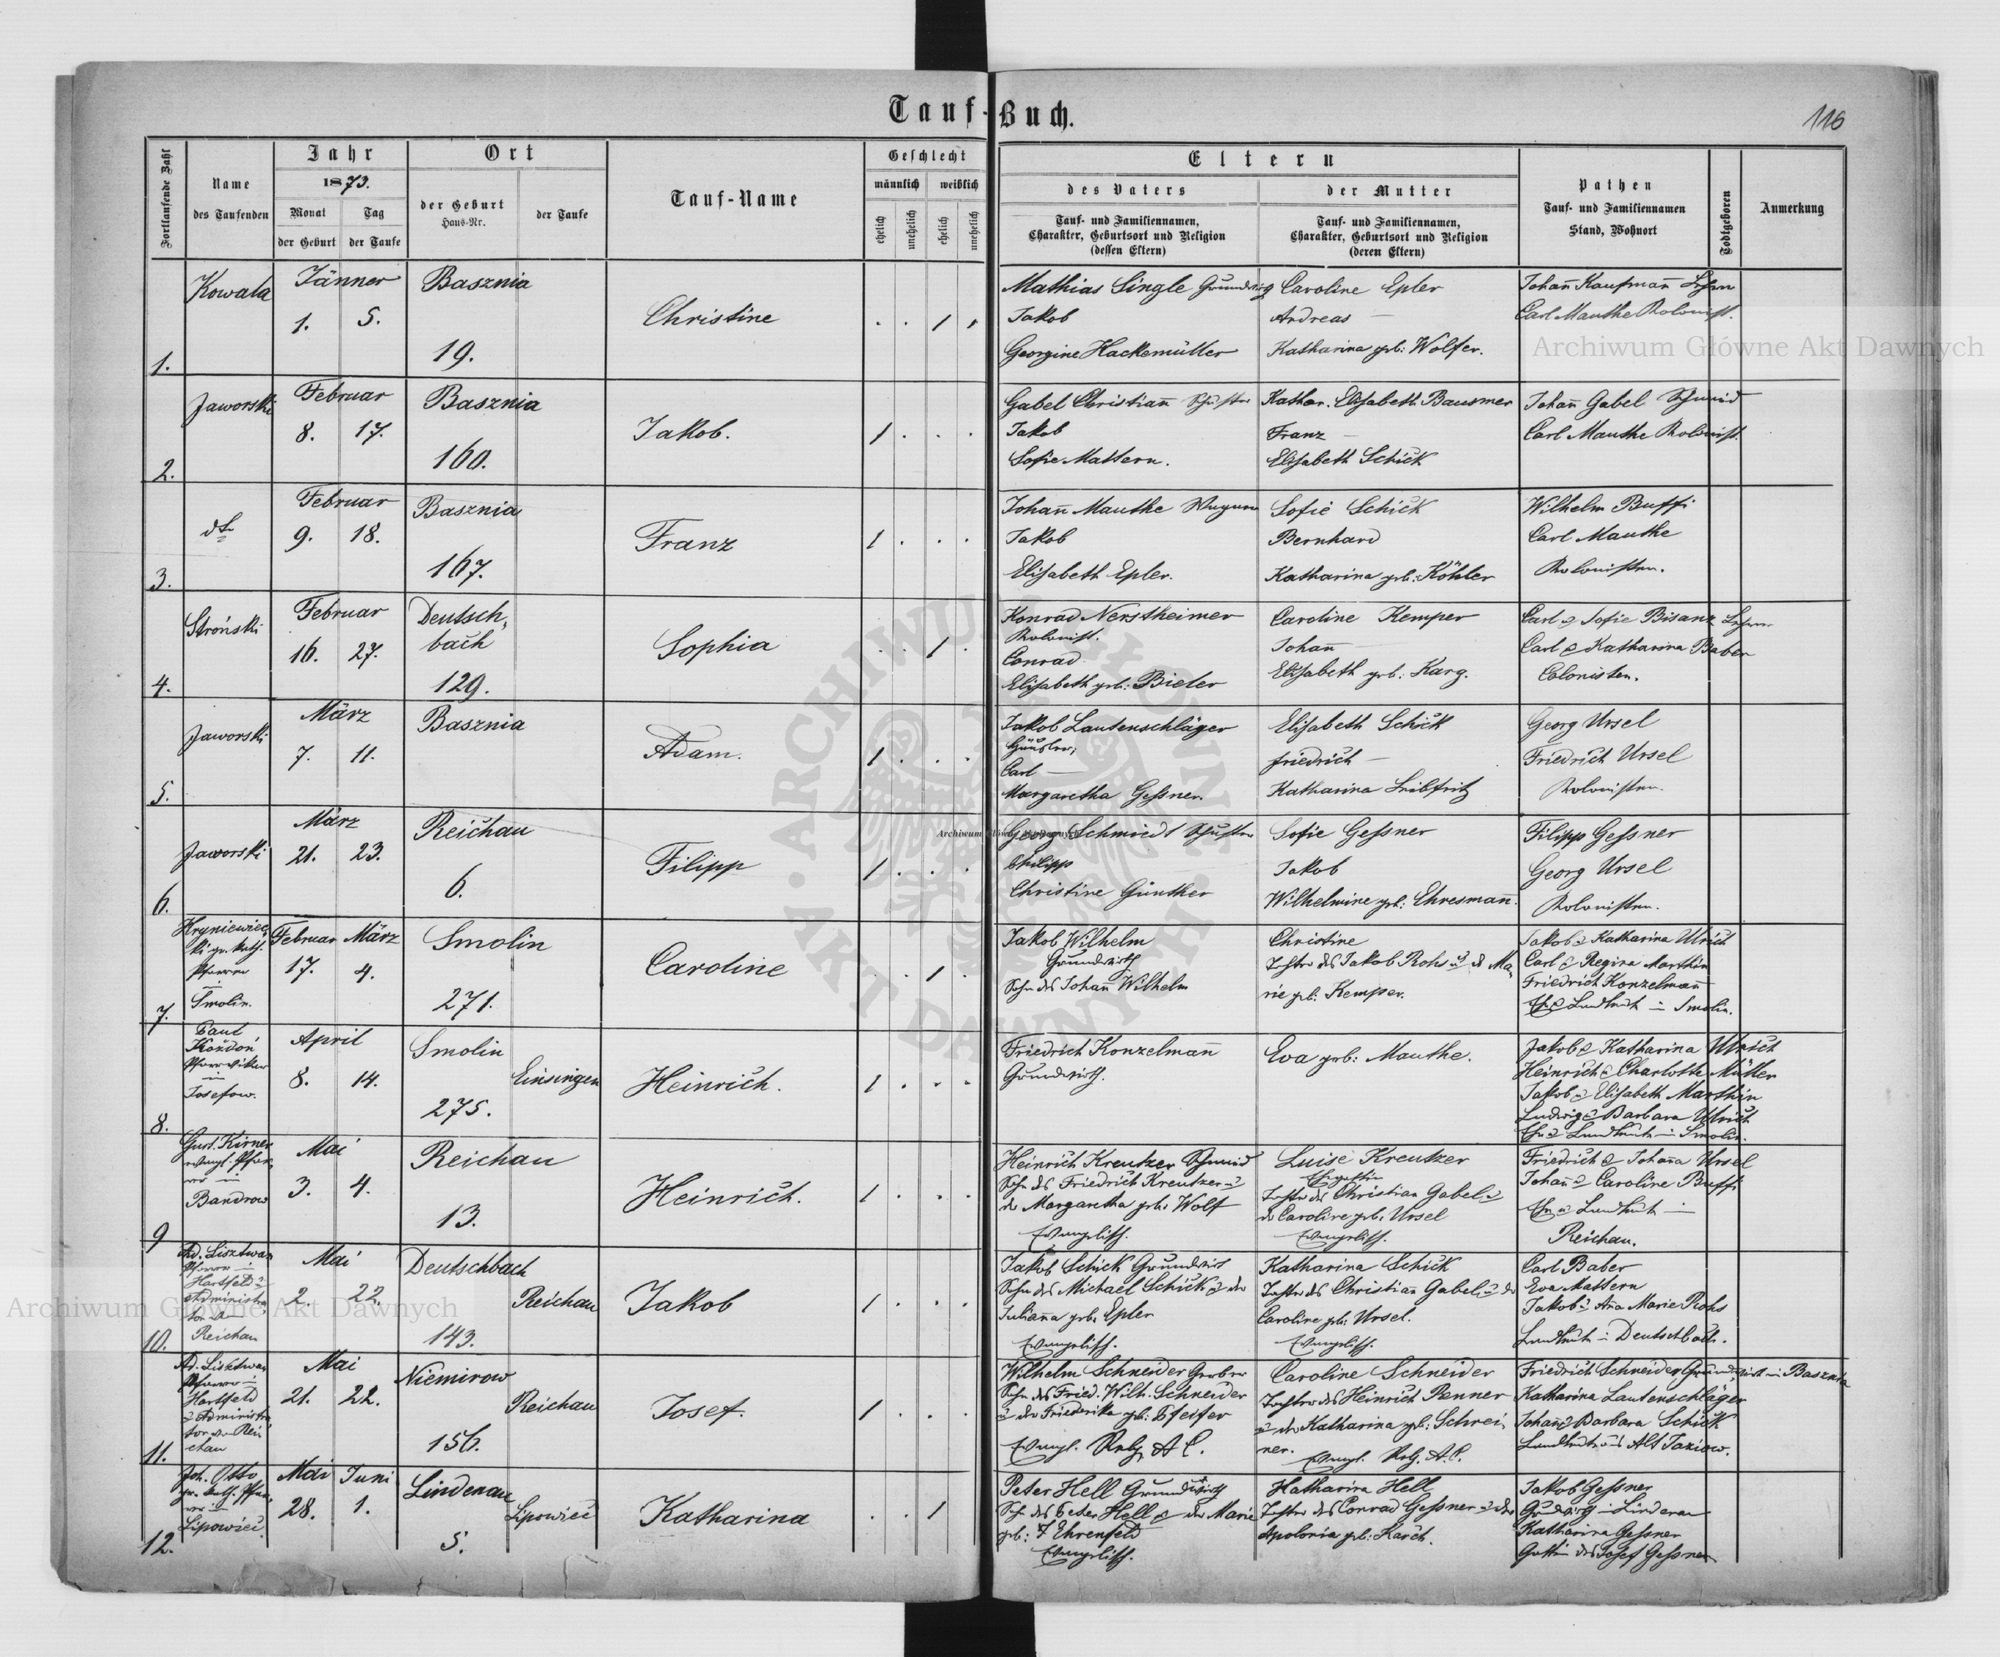 Tauf-Buch.
116
Fortlaufende Zahl
Name
des Taufenden
Jahr
1873.
Monat
der Geburt
Tag
der Taufe
Ort
der Geburt
Haus-Nr.
der Taufe
Tauf-Name
Geschlecht
männlich
weiblich
ehelich
unehelich
ehelich
unehelich
Eltern
des Vaters
Tauf- und Familiennamen,
Charakter, Geburtsort und Religion
(dessen Eltern)
der Mutter
Tauf- und Familiennamen,
Charakter, Geburtsort und Religion
(deren Eltern)
Pathen
Tauf- und Familiennamen
Stand, Wohnort
Todtgeboren
Anmerkung
1.
Kowala
Jänner
1. 5.
Basznia
19.
Christine
Mathias Single Grundwirth
Jakob
Georgine Hackemüller
Caroline Epler
Andreas —
Katharina geb: Wolfer.
Johann Kaufmann Lehrer
Carl Mauthe Kolonist.
2.
Jaworski
Februar
8. 17.
Basznia
160.
Jakob.
Gabel Christiann Schuster
Jakob
Sofie Mattern.
Kathar. Elisabeth Bausmer
Franz —
Elisabeth Schick
Johann Gabel Schmid
Carl Mauthe Kolonist.
3.
dto
Februar
9. 18.
Basznia
167.
Franz
Johann Mauthe Wagner
Jakob
Elisabeth Epler.
Sofie Schick
Bernhard
Katharina geb: Köhler
Wilhelm Buffi
Carl Mauthe
Kolonisten.
4.
Stroński
Februar
16. 27.
Deutsch-
bach
129.
Sophia
Konrad Nerstheimer
Kolonist.
Conrad
Elisabeth geb: Bieler
Caroline Kemper
Johann —
Elisabeth geb: Karg.
Carl & Sofie Bisanz Lehrer
Carl & Katharina Baber
Colonisten.
5.
Jaworski
März
7. 11.
Basznia
Adam.
Jakob Lautenschläger
Häusler,
Carl —
Margaretha Geßner.
Elisabeth Schick
Friedrich —
Katharina Leibfritz
Georg Ursel
Friedrich Ursel
Kolonisten.
6.
Jaworski
März
21. 23.
Reichau
6.
Filipp
Georg Schmiedt Schuster
Philipp
Christine Günther
Sofie Geßner
Jakob
Wilhelmine geb: Ehresmann.
Filipp Geßner
Georg Ursel
Kolonisten.
7.
Hryniewiec-
ki gr. kath.
Pfarrer
in
Smolin.
Februar März
17. 4.
Smolin
271.
Caroline
Jakob Wilhelm
Grundwirth
Sohn des Johann Wilhelm
Christine
Tochter des Jakob Rohs u. d. Ma-
rie geb: Kemper.
Jakob & Katharina Ulrich
Carl & Regina Marthin
Friedrich Konzelmann
Eheleute in Smolin.
8.
Paul
Kożdoń
Pfarrvikar
in
Josefow.
April
8. 14.
Smolin
275.
Einsingen
Heinrich.
Friedrich Konzelmann
Grundwirth.
Eva geb: Mauthe.
Jakob & Katharina Ulrich
Heinrich & Charlotte Müller
Jakob & Elisabeth Marthin
Ludwig & Barbara Ulrich
in Smolin.
9
Gust. Kirner
evangl. Pfar-
rer in
Bandrow
Mai
3. 4.
Reichau
13.
Heinrich.
Heinrich Kreutzer Schmid
Sohn des Friedrich Kreutzer u.
der Margaretha geb: Wolf
Evangelisch.
Luise Kreutzer
Tochter des Christian Gabel u.
der Caroline geb: Ursel
Evangelisch.
Friedrich & Johanna Ursel
Johann & Caroline Buffi
in
Reichau.
10.
Ad. Lisztwan
Pfarrer in
Hartfeld u.
Administra-
tor von
Reichau
Mai
2. 22.
Deutschbach
143.
Reichau
Jakob
Jakob Schick Grundwirt
Sohn des Michael Schick u. der
Juliana geb: Epler
Evangelisch.
Katharina Schick
Tochter des Christiann Gabel u. der
Caroline geb: Ursel.
Evangelisch.
Carl Baber
Eva Mattern
Jakob & Ana Marie Rohs
Landleute in Deutschbach.
11.
Ad. Lisztwan
Pfarrer in
Hartfeld
u Administra-
tor von Rei-
chau
Mai
21. 22.
Niemirow
156.
Reichau
Josef.
Wilhelm Schneider Gerber
Sohn des Fried. Wilh. Schneider
u der Friederika geb: Pfeifer
Evangl. Relg. A C.
Caroline Schneider
Tochter des Heinrich Renner
u der Katharina geb: Schrei-
ner.
Evangl. Relg. A. C.
Friedrich Schneider Grundwirth in Basznia
Katharina Lautenschläger
Johann & Barbara Schick
Landleute aus Alt Jaziow.
12.
Joh. Otto
gr. kath. Pfar-
rer in
Lipowiec
Mai Juni
28. 1.
Lindenau
5.
Lipowiec
Katharina
Peter Hell Grundwirth
Sohn des Peter Hell & der Marie
geb: Ehrenfeld
Evangelisch.
Katharina Hell
Tochter des Conrad Geßner u der
Apolonia geb: Karch.
Jakob Geßner
Grundwirth in Lindenau
Katharina Geßner
Gattin des Josef Geßner
Archiwum Główne Akt Dawnych
Archiwum Główne Akt Dawnych
Archiwum Główne Akt Dawnych
ARCHIWUM GŁÓWNE · AKT DAWNYCH ·